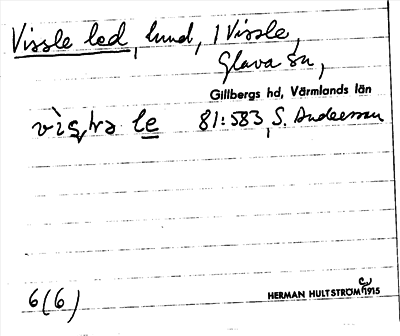 Vissle led, lund, 1 Vissle,
Glava sn,
Gillbergs hd, Värmlands län
81:583, S. Andersson
6(6)
HERMAN HULTSTRÖM 1915